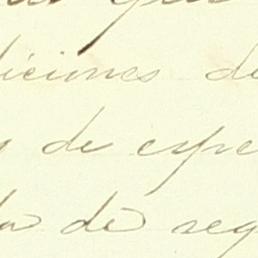 que
diciones de
de espe
da de seg